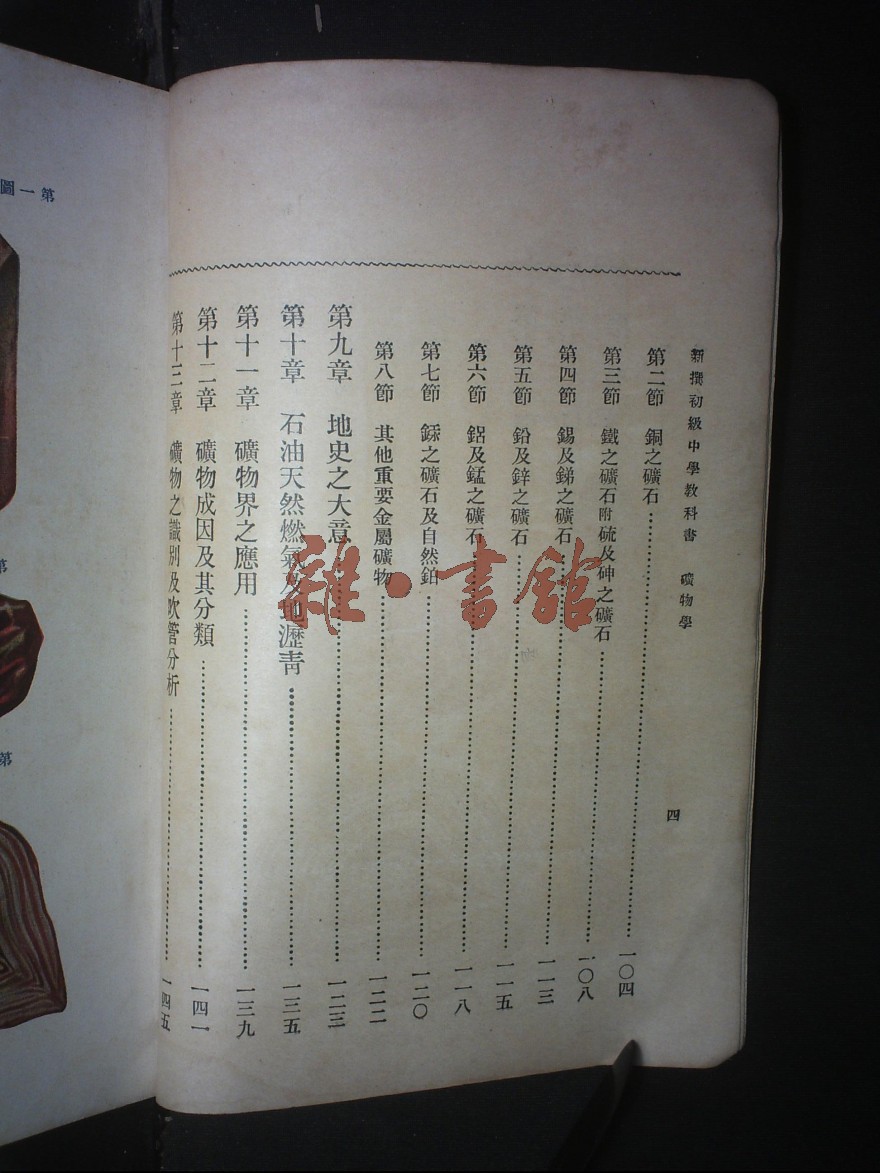 新撰初級中學教科書 礦物學 四
第二節 銅之礦石 一〇四
第三節 鐵之礦石附硫及砷之礦石 一〇八
第四節 錫及銻之礦石 一一三
第五節 鉛及鋅之礦石 一一五
第六節 鋁及錳之礦石 一一八
第七節 鎳之礦石及自然鉑 一二〇
第八節 其他重要金屬礦物 一二二
第九章 地史之大意 一二三
第十章 石油天然燃氣及地瀝靑 一三五
第十一章 礦物界之應用 一三九
第十二章 礦物成因及其分類 一四一
第十三章 礦物之識別及吹管分析 一四五
雜·書館
第一圖
第
第